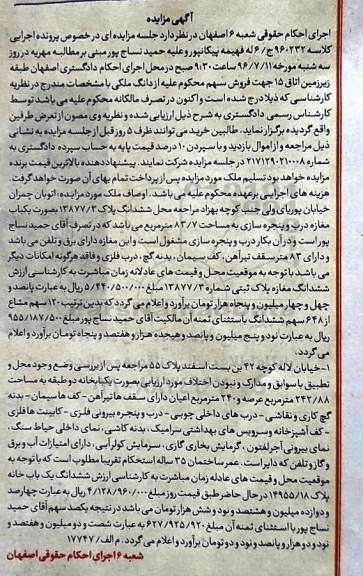 آگهی مزایده
اجرای احکام حقوقی شعبه ۶ اصفهان در نظر دارد جلسه مزایده ای در خصوص پرونده اجرایی
کلاسه ۹۶۰۲۳۲ ج/۶ له فهیمه پیکانپور و علیه حمید نساج پور مبنی بر مطالبه مهریه در روز
سه شنبه مورخه ۹۶/۷/۱۱ ساعت ۹:۳۰ صبح در محل اجرای احکام دادگستری اصفهان طبقه
زیرزمین اتاق ۱۵ جهت فروش سهم محکوم علیه از دانگ ملکی با مشخصات مندرج در نظریه
کارشناسی که ذیلا درج شده است و اکنون در تصرف مالکانه محکوم علیه می باشد توسط
کارشناس رسمی دادگستری به شرح ذیل ارزیابی شده و نظریه وی مصون از تعرض طرفین
واقع گردیده برگزار نماید. طالبین خرید می توانند ظرف ۵ روز قبل از جلسه مزایده به نشانی
ذیل مراجعه و از اموال بازدید و با سپردن ۱۰ درصد قیمت پایه به حساب سپرده دادگستری به
شماره ۲۱۷۱۲۹۰۲۱۰۰۰۸ در جلسه مزایده شرکت نمایند. پیشنهاد دهنده بالاترین قیمت برنده
مزایده خواهد بود تسلیم ملک مورد مزایده پس از پرداخت تمام بهای آن صورت خواهد گرفت
هزینه های اجرایی بر عهده محکوم علیه می باشد. اوصاف ملک مورد مزایده: اتوبان چمران
خیابان پوریای ولی جنب کوچه بهزاد مراجعه محل ششدانگ پلاک ۱۳۸۷۷/۳ بصورت یکباب
مغازه درب و پنجره سازی به مساحت ۸۳/۷ مترمربع می باشد که در تصرف آقای حمید نساج
پور است و در آن بکار درب و پنجره سازی مشغول است و این مغازه دارای برق و تلفن می باشد
و دارای ۸۳ متر سقف تیرآهن، کف سیمان، بدنه گچ، درب فلزی و فاقد هرگونه امکانات دیگر
می باشد با توجه به موقعیت محل و قیمت های عادلانه زمان مباشرت به کارشناسی ارزش
ششدانگ مغازه پلاک ثبتی شماره ۱۳۸۷۷/۳ مبلغ ۵/۴۴۰/۵۰۰/۰۰۰ ریال به عبارت پانصد و
چهل و چهار میلیون و پنجاه هزار تومان برآورد و اعلام می گردد که بدین ترتیب ۱۲۰ سهم مشاع
از ۶۴۸ سهم ششدانگ باستثنای ثمنه آن مالکیت آقای حمید نساج پور مبلغ ۹۵۵/۱۸۷/۵۰۰
ریال به عبارت نود و پنج میلیون و پانصد و هیجده هزار و هفتصد و پنجاه تومان برآورد و اعلام
می گردد.
۱- خیابان لاله کوچه ۴۲ بن بست اسفند پلاک ۵۵ مراجعه پس از بررسی وضع وجود محل و
تطبیق با سوابق و مدارک و نبودن اختلاف مورد ارزیابی بصورت یکبابخانه دو طبقه به مساحت
۲۴۲/۸۸ مترمربع عرصه و ۲۴۰ مترمربع اعیان دارای سقف ها تیرآهن - کف ها سیمان - بدنه
گچ کاری و نقاشی - درب های داخلی چوبی - درب و پنجره بیرونی فلزی - کابینت ها فلزی
- کف آشپزخانه و سرویس های بهداشتی سرامیک، بدنه کاشی، نمای داخلی حیاط سنگ،
نمای بیرونی آجر لفتون، گرمایش بخاری گازی، سرمایش کولر آبی، دارای امتیازات آب و برق
و گاز و تلفن که دایر است. عمر ساختمان ۳۵ ساله استحکام تقریبا مطلوب است که با توجه به
موقعیت محل و قیمت های عادله زمان مباشرت به کارشناسی ارزش ششدانگ یک باب خانه
پلاک ۱۴۹۵۵/۱۸ در حال حاضر طبق قیمت روز مبلغ ۴/۱۲۸/۹۶۰/۰۰۰ ریال به عبارت چهارصد
و دوازده میلیون و هشتصد و نود و شش هزار تومان می باشد در نتیجه یکصد سهم آقای حمید
نساج پور با استثنای ثمنه آن مبلغ ۶۲۷/۹۲۵/۹۲۰ به عبارت شصت و دو میلیون و هفتصد و
نود و دو هزار و پانصد و نود و دو تومان برآورد و اعلام می گردد. م الف/ ۱۷۷۴۷
شعبه ۶ اجرای احکام حقوقی اصفهان